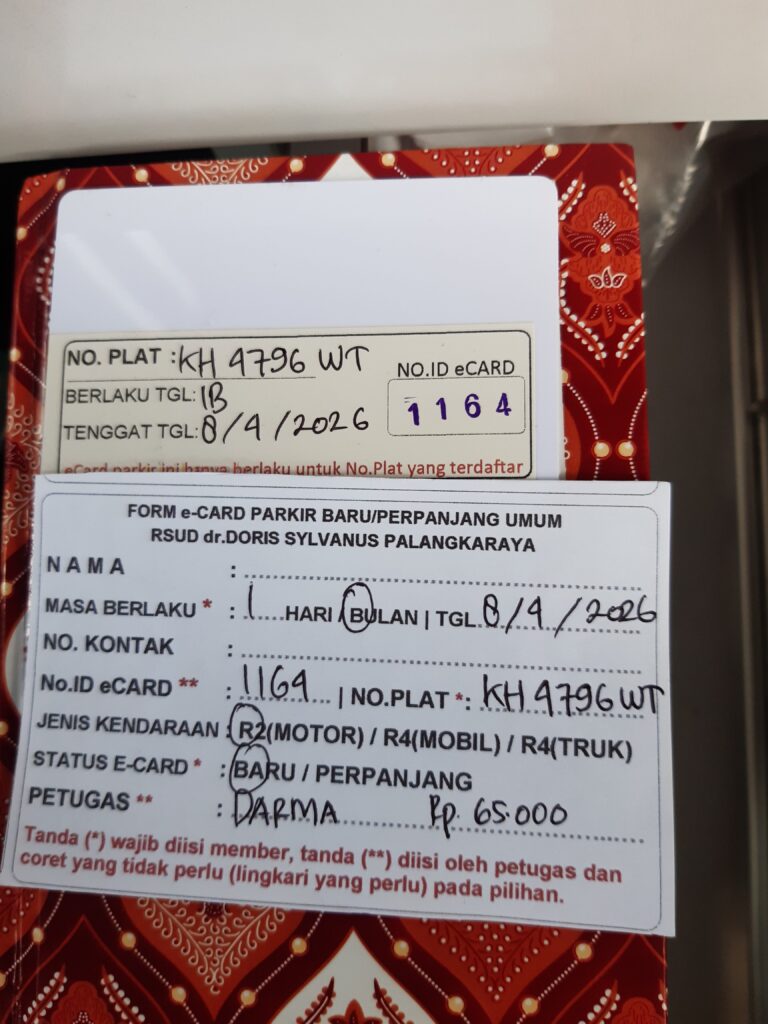 NO. PLAT : KH 4796 WT
NO.ID eCARD
BERLAKU TGL: 1B
1164
TENGGAT TGL: 8/4/2026
eCard parkir ini hanya berlaku untuk No.Plat yang terdaftar
FORM e-CARD PARKIR BARU/PERPANJANG UMUM
RSUD dr.DORIS SYLVANUS PALANGKARAYA
NAMA :
MASA BERLAKU * : 1 HARI / BULAN | TGL 8/4/2026
NO. KONTAK :
No.ID eCARD ** : 1164 | NO.PLAT *: KH 4796 WT
JENIS KENDARAAN : R2(MOTOR) / R4(MOBIL) / R4(TRUK)
STATUS E-CARD * : BARU / PERPANJANG
PETUGAS ** : DARMA Rp. 65.000
Tanda (*) wajib diisi member, tanda (**) diisi oleh petugas dan
coret yang tidak perlu (lingkari yang perlu) pada pilihan.